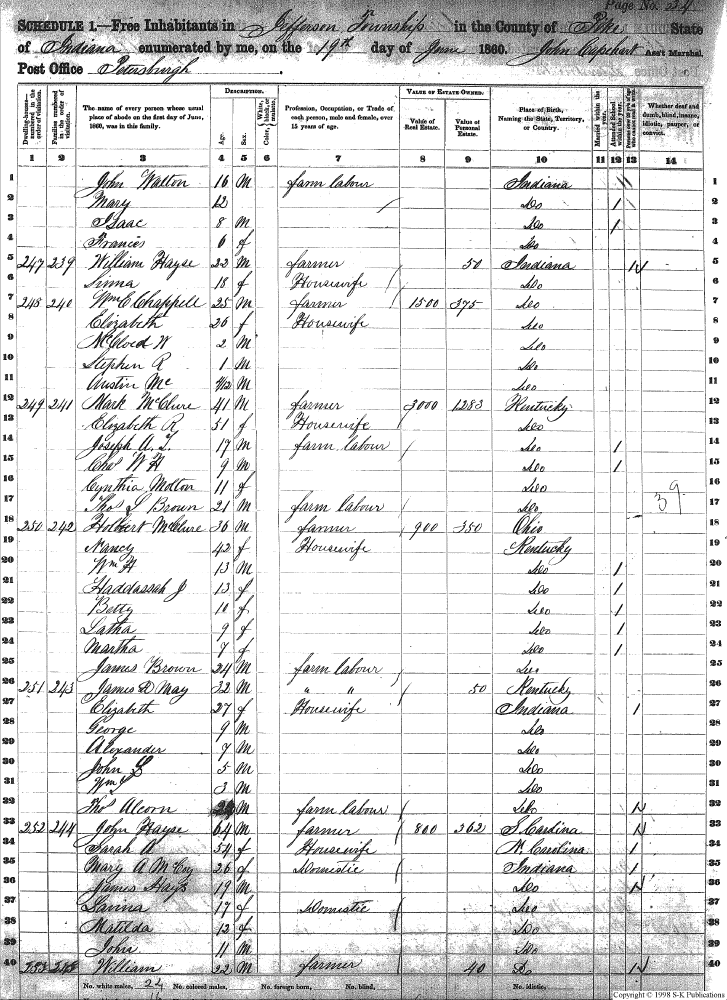 Page No. 34
SCHEDULE 1.—Free Inhabitants in Jefferson Township in the County of Pike State
of Indiana enumerated by me, on the 19th day of June 1860. John Capehart Ass't Marshal.
Post Office Petersburgh.
Dwelling-houses—numbered in the order of visitation. Families numbered in the order of visitation. The name of every person whose usual place of abode on the first day of June, 1860, was in this family. DESCRIPTION. Age. Sex. Color, White, black, or mulatto. Profession, Occupation, or Trade of each person, male and female, over 15 years of age. VALUE OF ESTATE OWNED. Value of Real Estate. Value of Personal Estate. Place of Birth, Naming the State, Territory, or Country. Married within the year. Attended School within the year. Whether deaf and dumb, blind, insane, idiotic, pauper, or convict.
1 2 3 4 5 6 7 8 9 10 11 12 13 14
1 John Walton 16 M farm labour Indiana 1
2 Mary 12 Do 1 2
3 Isaac 8 M Do 1 3
4 Frances 6 f Do 4
5 247 239 William Hayse 22 M farmer 50 Indiana 5
6 18 f Housewife Do 6
7 248 240 Wm E Chappell 25 M farmer 1500 375 Do 7
8 Elizabeth 26 f Housewife Do 8
9 McCloed W 2 M Do 9
10 Stephen R 1 M Do 10
11 Austin Mc M Do 11
12 249 241 Mark McClure 41 M farmer 3000 1283 Kentucky 12
13 Elizabeth R 51 f Housewife Do 13
14 Joseph A. T. 17 M farm labour Do 1 14
15 Chas W H 9 M Do 1 15
16 Cynthia Molton 11 f Do 16
17 Thos S Brown 21 M farm labour Do 39 17
18 250 242 Holbert McClure 36 M farmer 900 350 Ohio 18
19 Nancy 42 f Housewife Kentucky 19
20 Wm H 13 M Do 1 20
21 Haddassah J 13 f Do 1 21
22 Betty 10 f Do 1 22
23 Latha 9 f Do 1 23
24 Martha 7 f Do 1 24
25 James Brown 24 M farm labour Do 25
26 251 243 James R May 32 M " " 50 Kentucky 26
27 Elizabeth 27 f Housewife Indiana 1 27
28 George 9 M Do 28
29 Alexander 7 M Do 29
30 John S 5 M Do 30
31 Wm 3 M Do 31
32 Thos Alcorn M farm labour Do 32
33 252 244 John Hayse 64 M farmer 800 362 S. Carolina 33
34 Sarah A 54 f Housewife N. Carolina 1 34
35 Mary A 26 f Domestic Indiana 1 35
36 James Hays 19 M Do 36
37 Lavina 17 f Domestic Do 37
38 Matilda 12 f Do 38
39 John 11 M Do 39
40 253 245 William 22 M farmer 40 Do 40
No. white males, 24 No. colored males, No. foreign born, No. blind, No. idiotic,
Copyright © 1998 S-K Publications